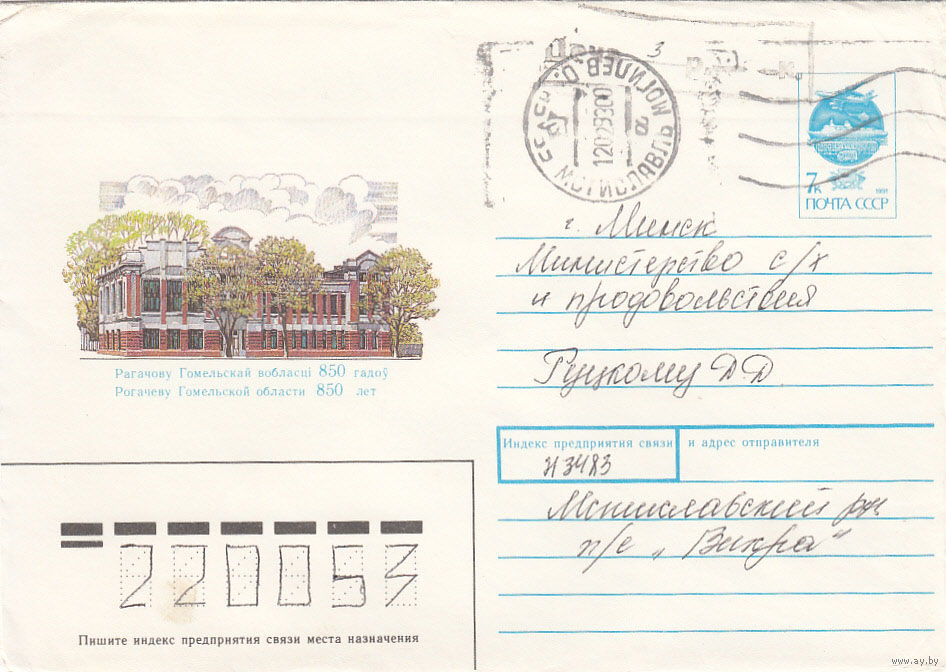 Цена
3
МОГИЛЕВ.О.
8
120293300
МСТИСЛАВЛЬ
7к
1991
ПОЧТА СССР
г. Минск
Министерство с/х
и продовольствия
Руцкому Д.Д.
Рагачову Гомельскай вобласці 850 гадоў
Рогачеву Гомельской области 850 лет
Индекс предприятия связи и адрес отправителя
Мстиславский р-н
"Вихра"
220053
Пишите индекс предприятия связи места назначения
www.ay.by